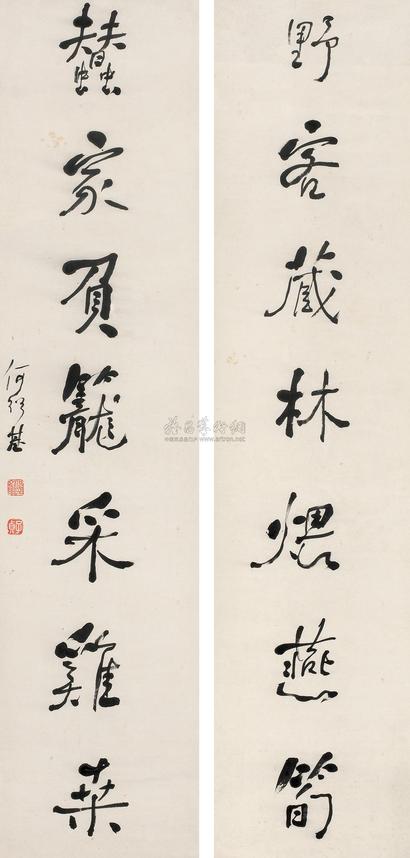 野客藏林煨燕筍
蠶家負籠采雞桑
何紹基
雅昌藝術網
www.artron.net